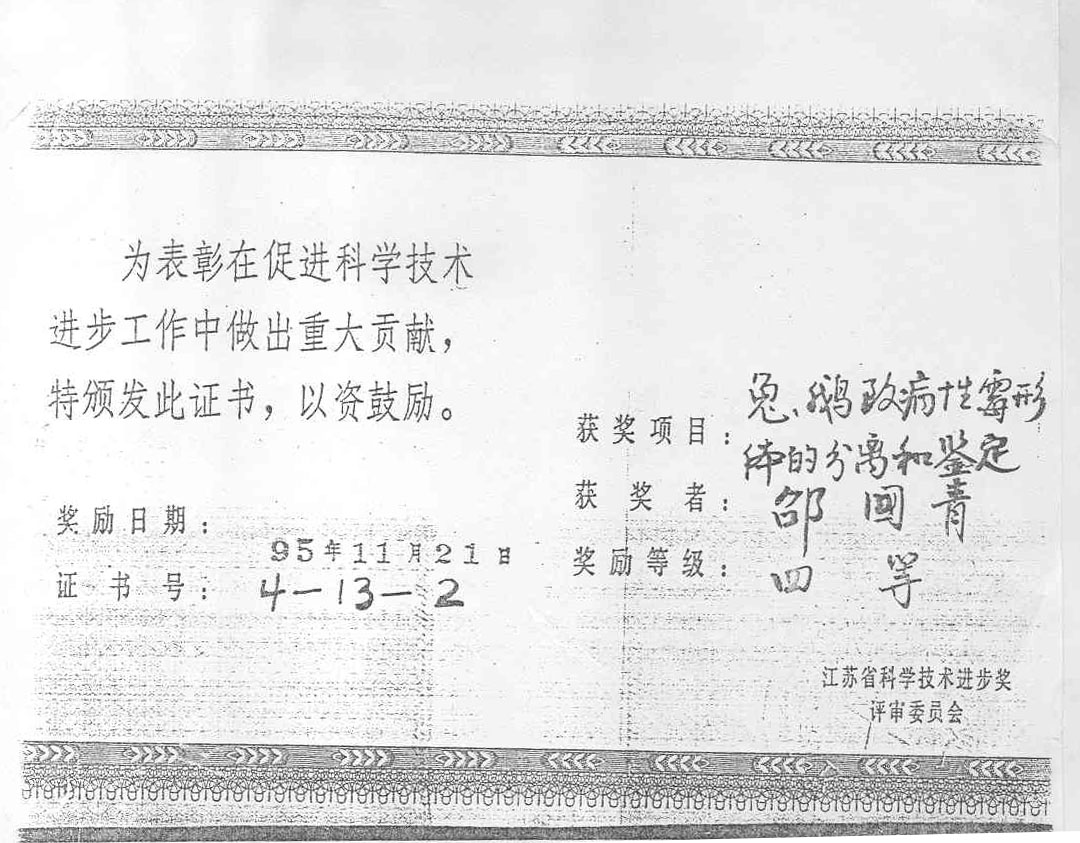 为表彰在促进科学技术
进步工作中做出重大贡献，
特颁发此证书，以资鼓励。
奖励日期：
95年11月21日
证书号：4—13—2
获奖项目：兔、鹅致病性霉形
体的分离和鉴定
获奖者：邵国青
奖励等级：四等
江苏省科学技术进步奖
评审委员会